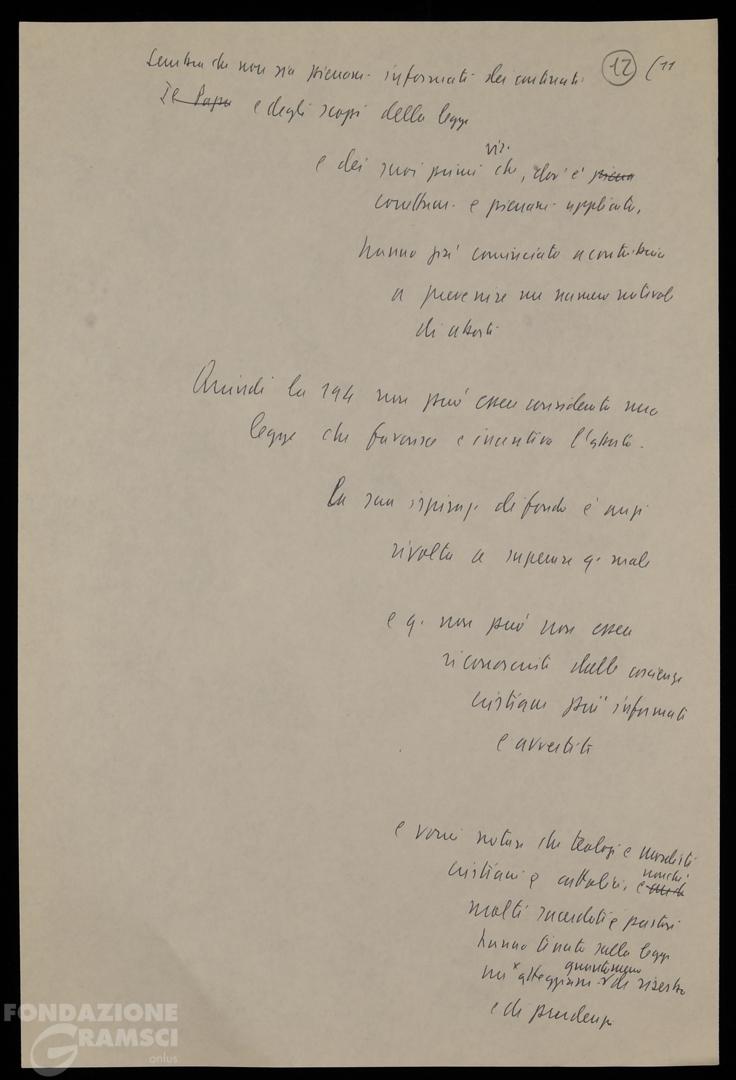 Sembra che non sia pienam. informati dei contenuti (12) (11
Il Papa e degli scopi della legge
ris.
e dei suoi primi che, dov'è piena
correttam. e pienam. applicata,
hanno già cominciato a contribuire
a prevenire un numero notevole
di aborti
Quindi la 194 non può essere considerata una
legge che favorisce e incentiva l'aborto.
La sua ispiraz. di fondo è anzi
rivolta a superare q. male
e q. non può non essere
riconosciuto dalle coscienze
cristiane più informate
e avvertite
e vorrei notare che teologi e moralisti
nonché
cristiani e cattolici, e anche
molti sacerdoti e pastori
hanno tenuto sulla legge
quantomeno
un atteggiam. di riserbo
e di prudenza
FONDAZIONE
GRAMSCI
onlus